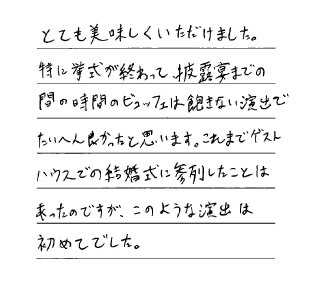 とても美味しくいただけました。
特に挙式が終わって、披露宴までの
間の時間のビュッフェは飽きない演出で
たいへん良かったと思います。これまでゲスト
ハウスでの結婚式に参列したことは
あったのですが、このような演出は
初めてでした。